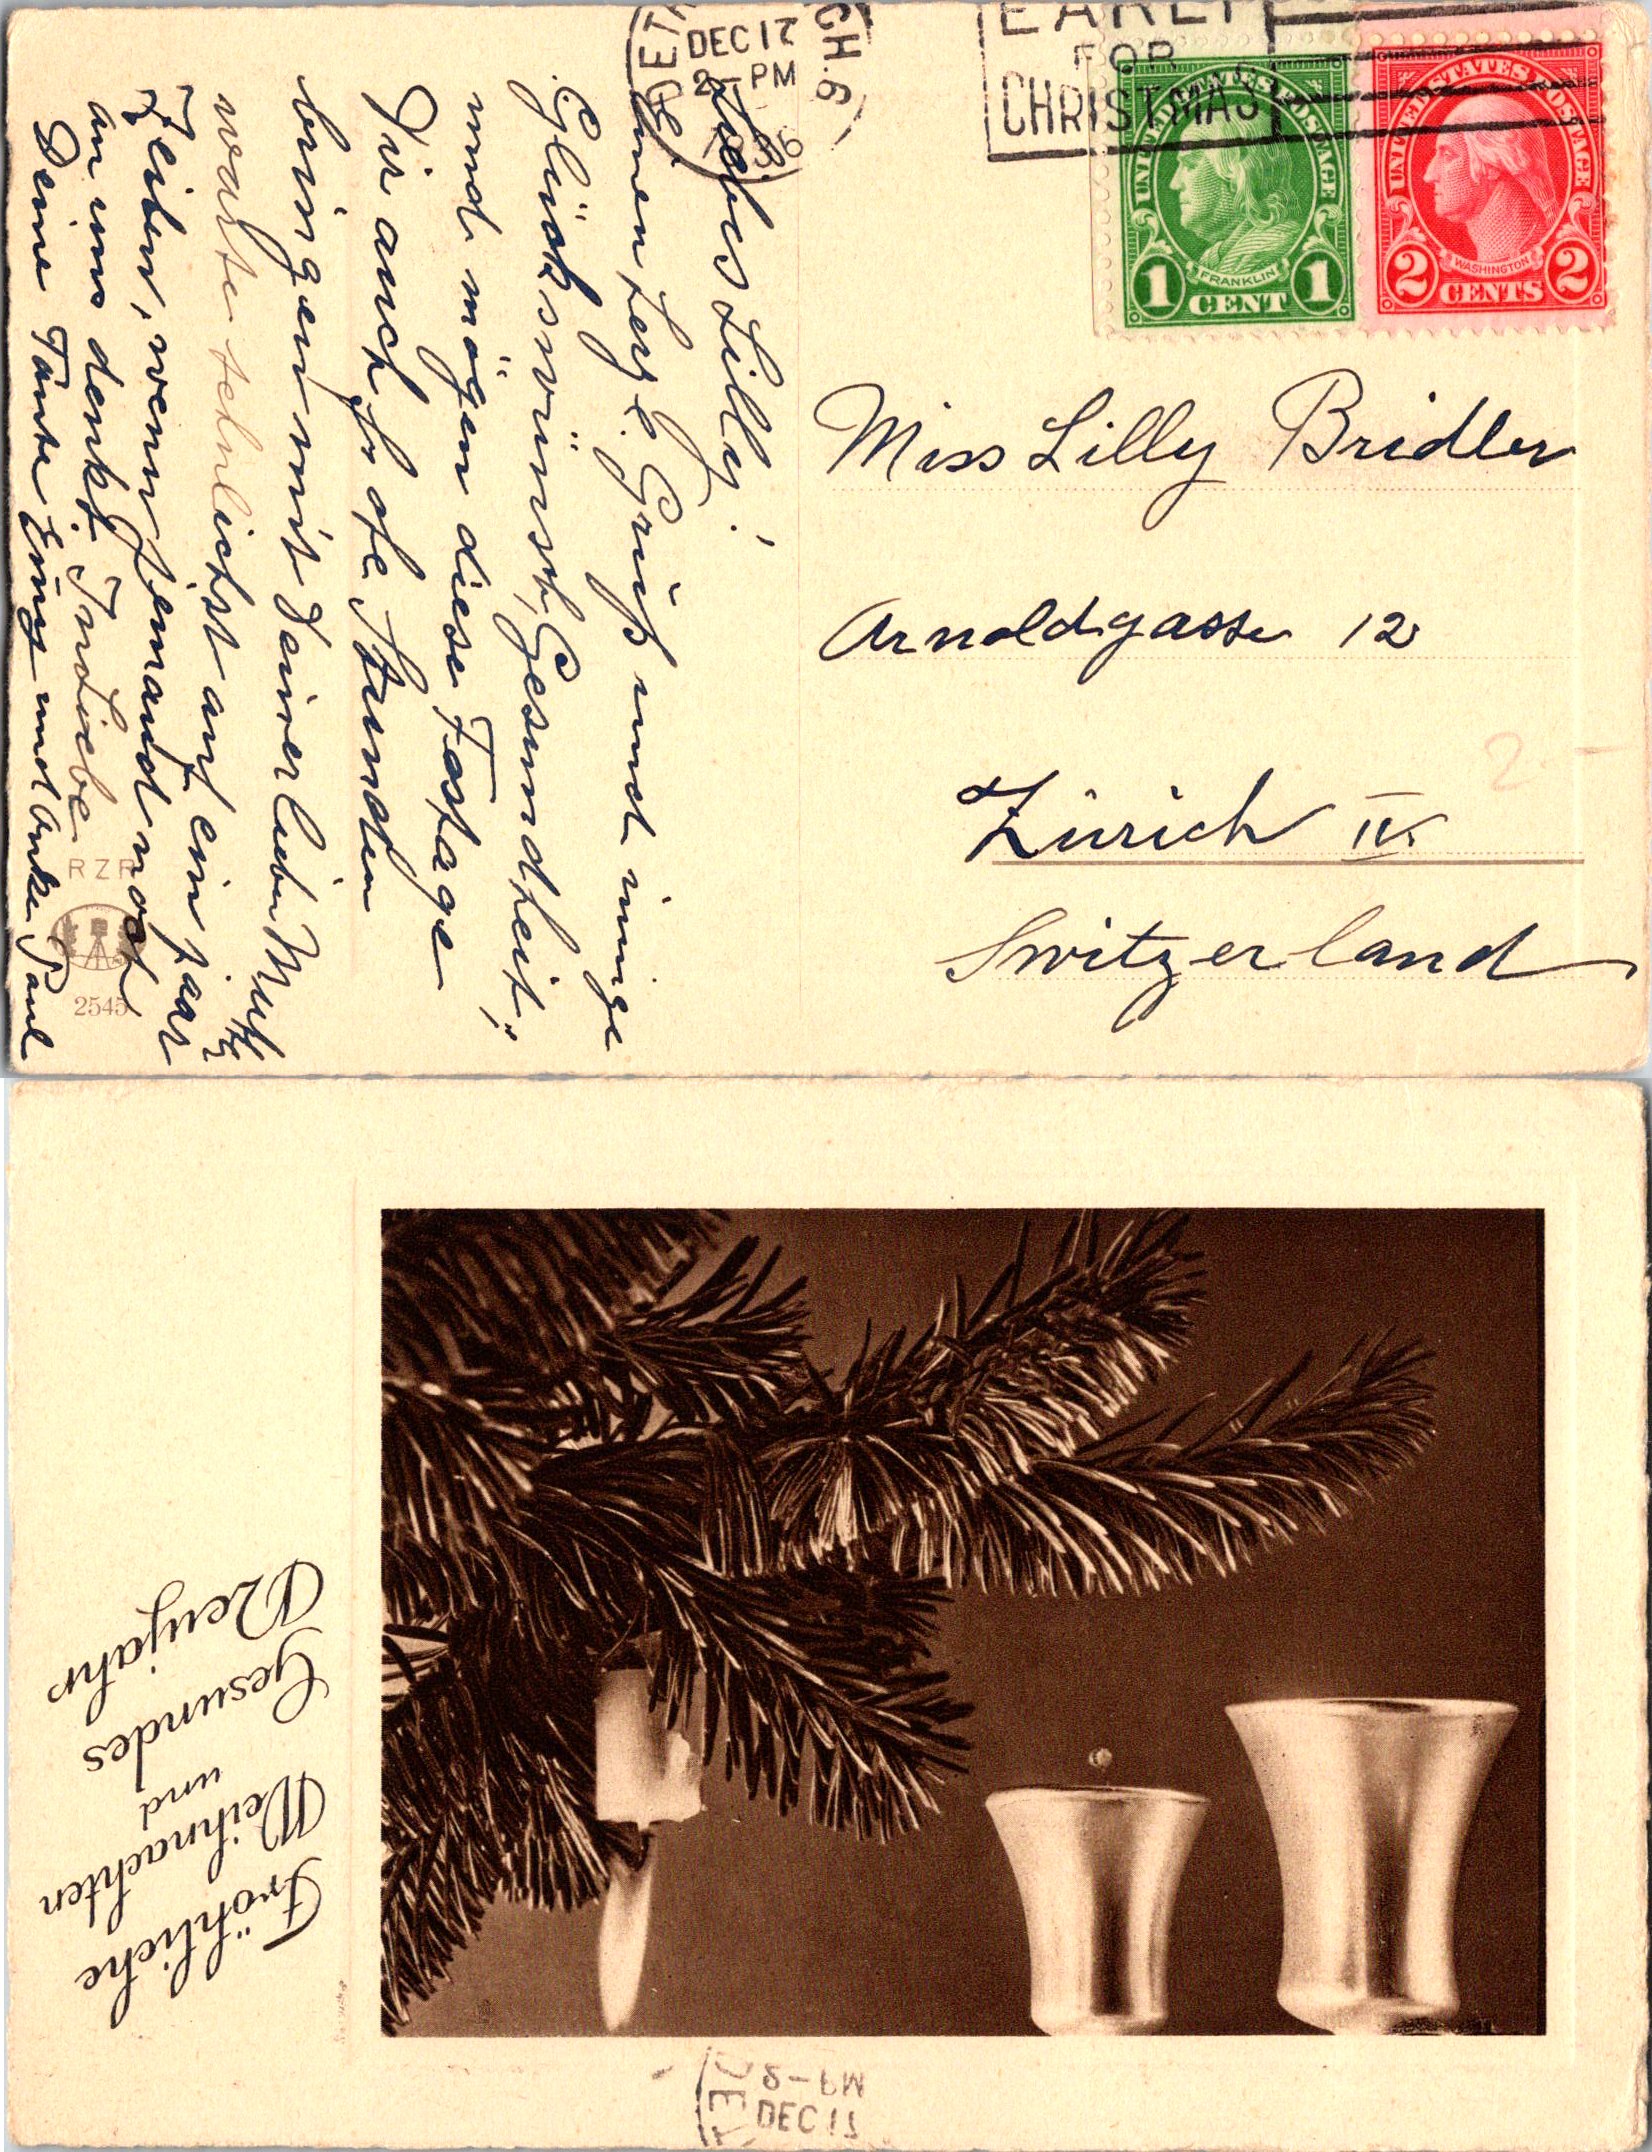 DETR CH. 6
DEC 17
2-PM
EARLY
FOR
CHRISTMAS
UNITED STATES POSTAGE
FRANKLIN
1 CENT 1
UNITED STATES POSTAGE
WASHINGTON
2 CENTS 2
Miss Lilly Bridler
Arnoldgasse 12
Zürich IV.
Switzerland
2.-
Liebes Lilly!
Einen herzl. Gruß und innige
Glückswünsche, Gesundheit,
und mögen diese Festage
Dir auch frohe Stunden
bringen mit Deiner lieben Mutter
warte sehnlichst auf ein paar
Zeilen, wenn jemand noch
an uns denkt. In Liebe
Deine Tante Emy und Onkel Paul
RZR
2545
Fröhliche
Weihnachten
und
Gesundes
Neujahr
DEC 17
2-PM